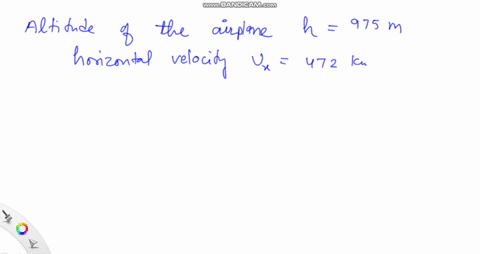 www.BANDICAM.com
Altitude of the airplane h = 975 m
horizontal velocity Vx = 472 km